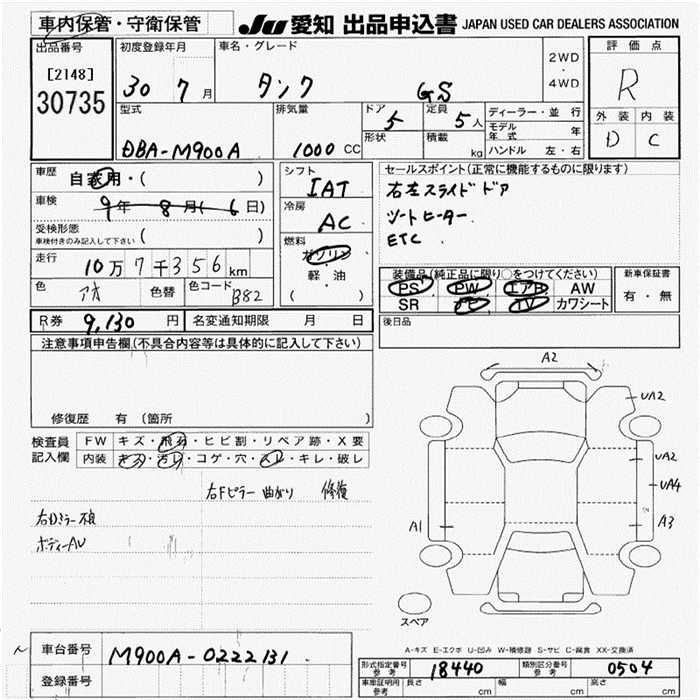 車内保管・守衛保管
JU 愛知 出品申込書 JAPAN USED CAR DEALERS ASSOCIATION
出品番号
[2148]
30735
初度登録年月
30 7 月
車名・グレード
タンク GS
2WD
・
4WD
評価点
R
外装 内装
D C
型式
DBA-M900A
排気量
1000 CC
ドア
5
形状
定員
5人
積載
kg
ディーラー・並行
モデル年式 年
ハンドル 左・右
車歴
自家用・( )
車検
9年 8月( 6日)
受検形態
車検付きのみ記入して下さい ( )
走行
10万7千356km
色
アオ
色替
色コード
B82
シフト
IAT
冷房
AC
燃料
ガソリン
軽・油
( )
セールスポイント(正常に機能するものに限ります)
右左スライドドア
シートヒーター
ETC
装備品(純正品に限り○をつけてください)
PS PW エアB AW
SR ナビ TV カワシート
新車保証書
有・無
後日品
R券 9,130 円
名変通知期限 月 日
注意事項申告欄(不具合内容等は具体的に記入して下さい)
修復歴 有(箇所 )
検査員
記入欄
FW キズ・飛石・ヒビ割・リペア跡・X要
内装 キズ・汚レ・コゲ・穴・スレ・キレ・破レ
右Fピラー 曲がり 修復
右Dミラー不良
ボディーAU
A2
UA2
UA2
UA4
A1
A3
スペア
A-キズ E-エクボ U-凹み W-補修跡 S-サビ C-腐食 XX-交換済
車台番号
M900A-0222131
登録番号
形式指定番号
参考
18440
類別区分番号
参考
0504
車車証明用
参考
長さ cm
幅 cm
高さ cm